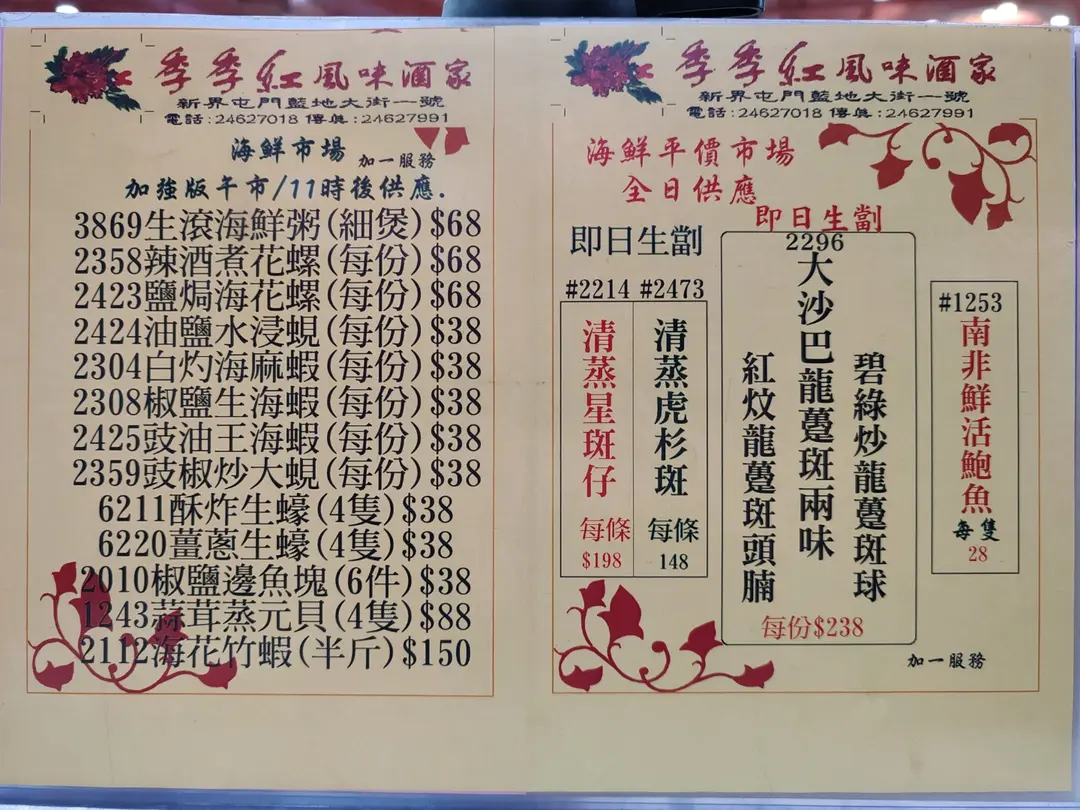 季季紅風味酒家
新界屯門藍地大街一號
電話:24627018 傳真:24627991
海鮮市場 加一服務
加強版午市/11時後供應.
3869生滾海鮮粥(細煲)$68
2358辣酒煮花螺(每份)$68
2423鹽焗海花螺(每份)$68
2424油鹽水浸蜆(每份)$38
2304白灼海麻蝦(每份)$38
2308椒鹽生海蝦(每份)$38
2425豉油王海蝦(每份)$38
2359豉椒炒大蜆(每份)$38
6211酥炸生蠔(4隻)$38
6220薑蔥生蠔(4隻)$38
2010椒鹽邊魚塊(6件)$38
1243蒜茸蒸元貝(4隻)$88
2112海花竹蝦(半斤)$150
季季紅風味酒家
新界屯門藍地大街一號
電話:24627018 傳真:24627991
海鮮平價市場
全日供應
即日生劏
#2214 #2473
清蒸星斑仔
每條
$198
清蒸虎杉斑
每條
148
即日生劏
2296
大沙巴龍躉斑兩味
紅炆龍躉斑頭腩
碧綠炒龍躉斑球
每份$238
#1253
南非鮮活鮑魚
每隻
28
加一服務